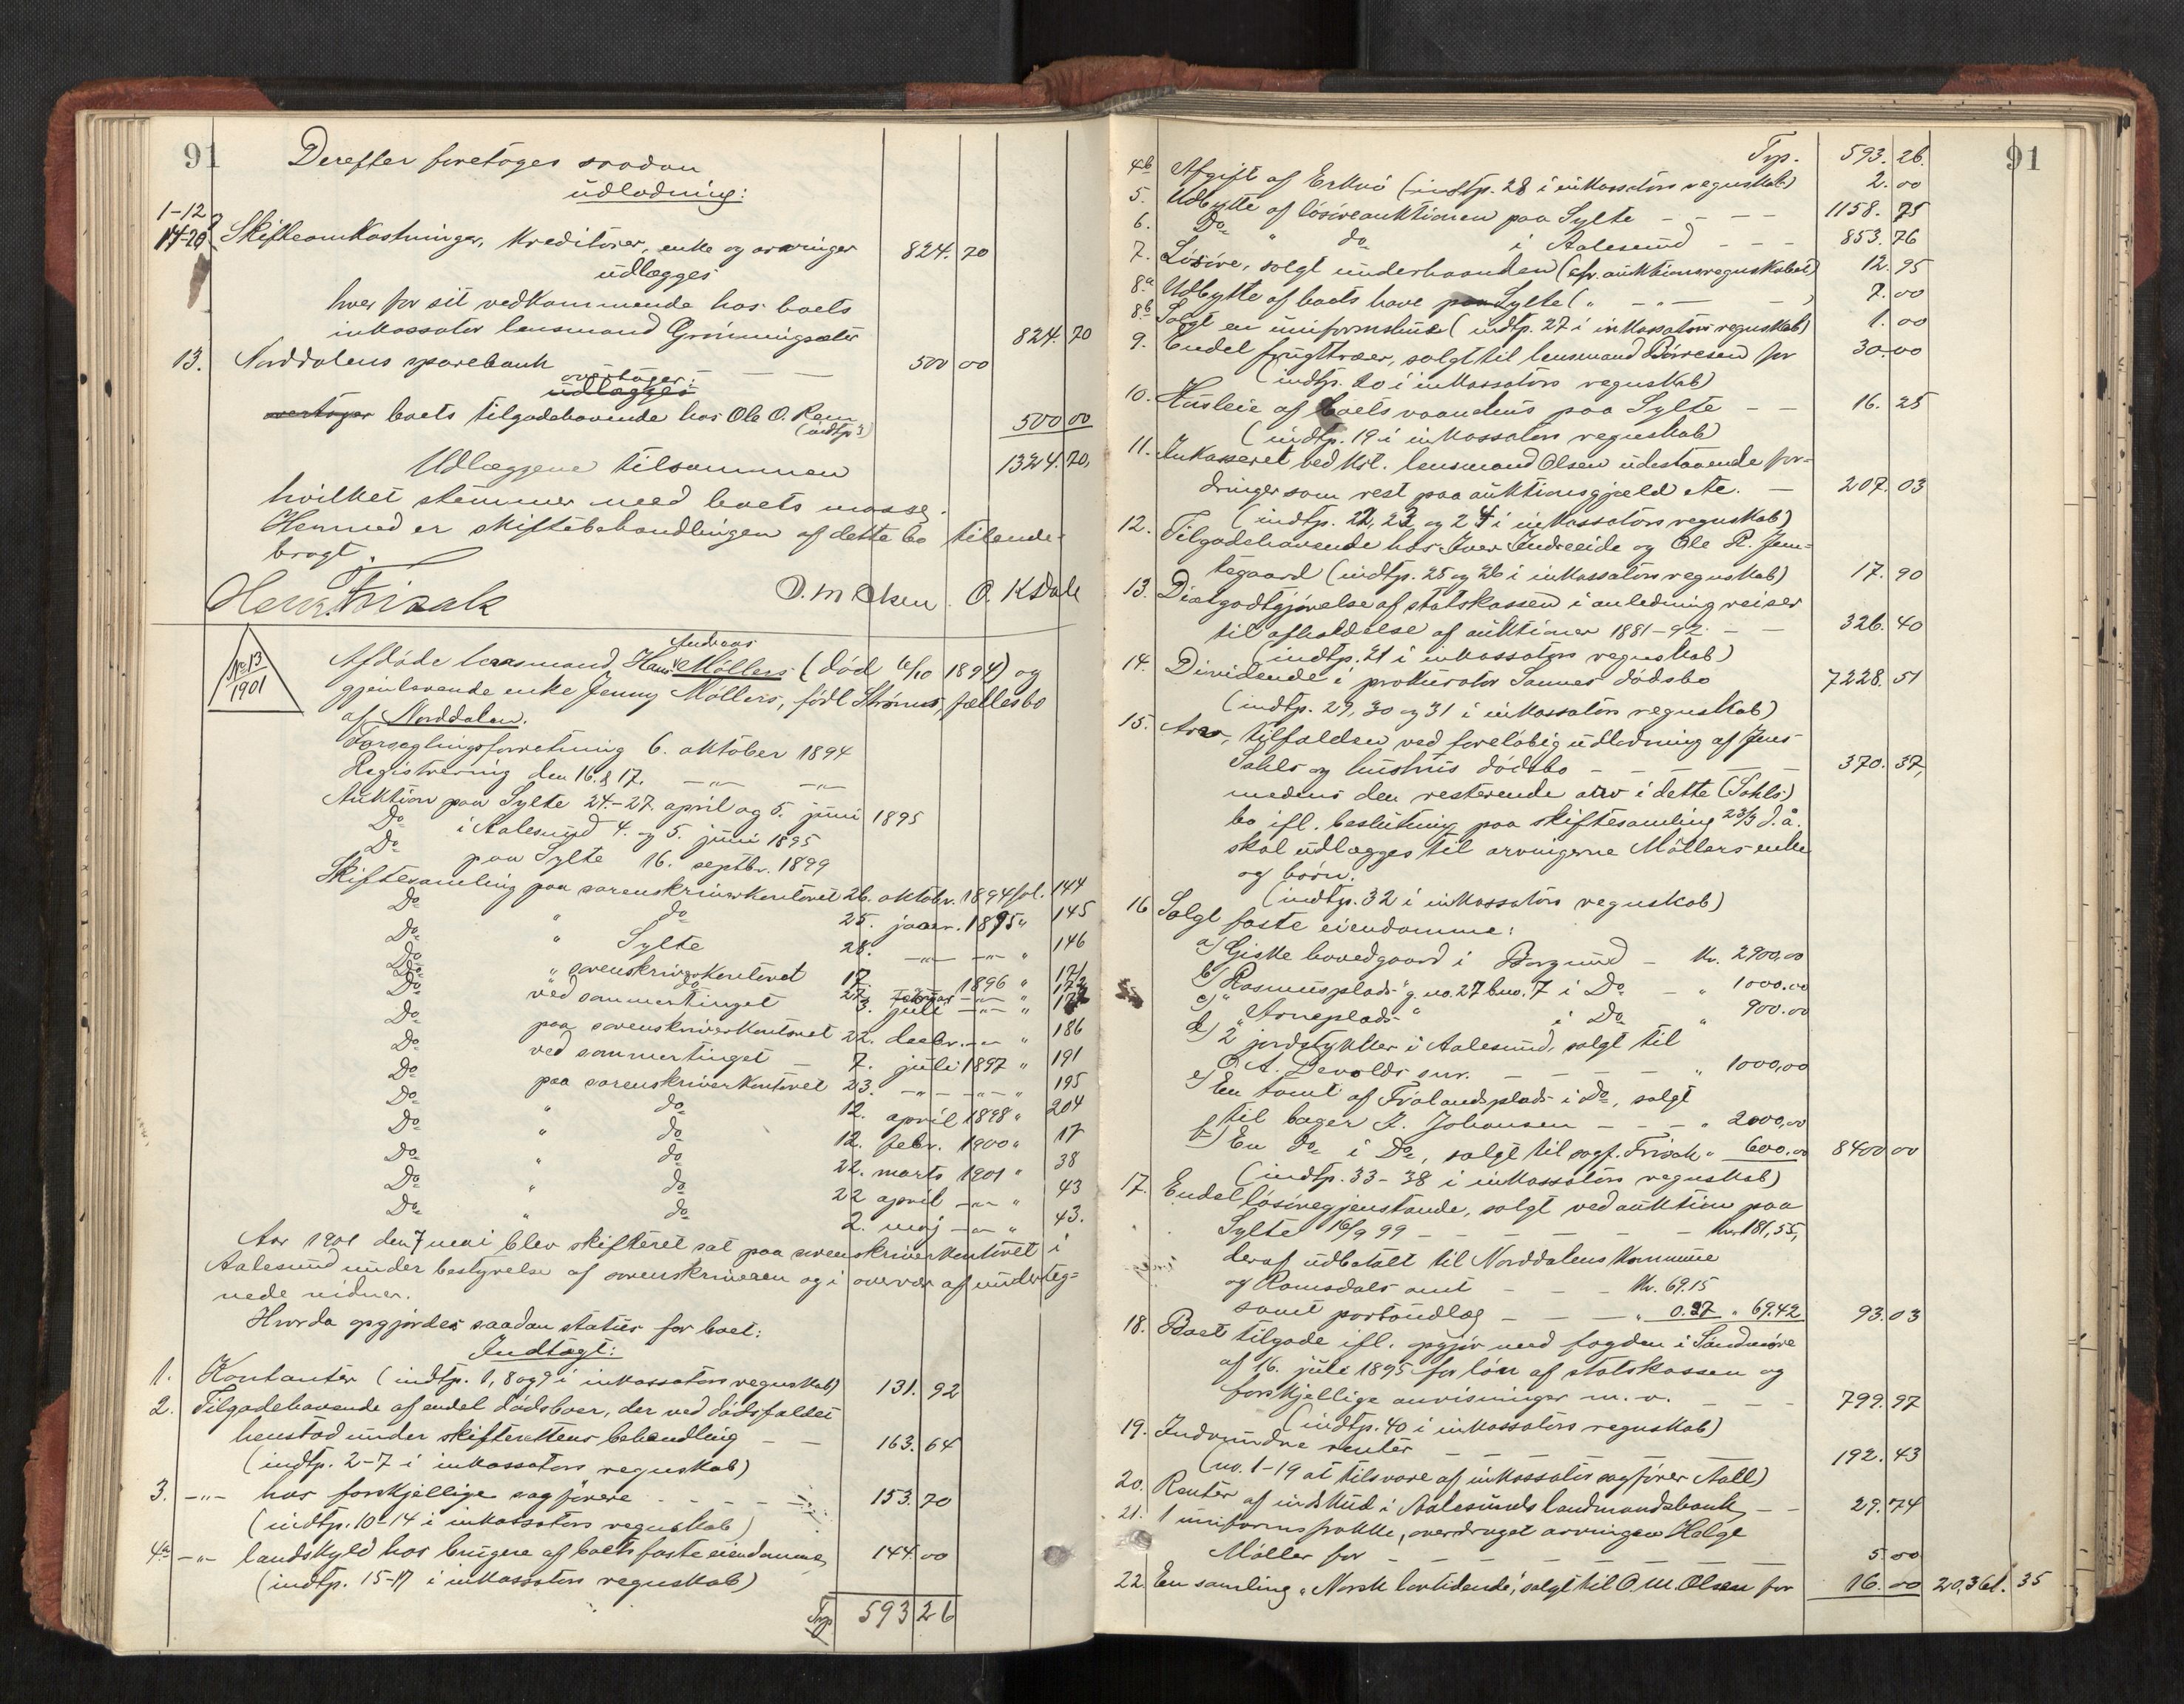 91
Derefter foretoges saadan
udlodning:
1-12
14-20 Skifteomkostninger, kreditorer, enke og arvinger 824.70
udlægges
hver for sit vedkommende hos boets
inkassator lensmand Grønningsæter 824.70
13. Norddalens sparebank — — 500 00
overtager:
udlægges
overtager boets tilgodehavende hos Ole O. Rem
(indtp 3) 500 00
Udlæggene tilsammen 1324.70,
hvilket stemmer med boets masse.
Hermed er skiftebehandlingen af dette bo tilende-
bragt.
Henr. Frisak O. M. Olsen O. K. Dale
No 13
1901
Afdøde lensmand Hans Andreas Møllers (død 6/10 1894) og
gjenlevende enke Jenny Møllers, født Strøms, fællesbo
af Norddalen.
Forseglingsforretning 6. oktober 1894
Registrering den 16. & 17. —"— —"—
Auktion paa Sylte 24.-27. april og 5. juni 1895
Do i Aalesund 4. og 5. juni 1895
Do paa Sylte 16. septbr. 1899
Skiftesamling paa sorenskriverkontoret 26. oktobr. 1894 fol. 144
Do " do 25. januar. 1895 " 145
Do " Sylte 28. —"— —"— " 146
Do " sorenskriverkontoret 17. 1896 " 171
Do do 27. februar —"— " 172
Do ved sommertinget 3. juli —"— "
Do paa sorenskriverkontoret 22. decbr. —"— " 186
Do ved sommertinget 7. juli 1897 " 191
Do paa sorenskriverkontoret 23. —"— —"— " 195
Do " do 12. april 1898 " 204
Do " do 12. febr. 1900 " 17
Do " do 22. marts 1901 " 38
Do " do 22 april —"— " 43
Do " do 2. maj —"— " 43.
Aar 1901 den 7 mai blev skifteret sat paa sorenskriverkontoret i
Aalesund under bestyrelse af sorenskriveren og i overvær af underteg-
nede vidner.
Hvorda opgjordes saadan status for boet:
Indtægt:
1. Kontanter (indtp. 1, 8 og 9 i inkassators regnskab) 131.92
2. Tilgodehavende af endel dødsboer, der ved dødsfaldet
henstod under skifterettens behandling — — 163.64
(indtp. 2-7 i inkassators regnskab)
3. —"— hos forskjellige sagførere - - - - 153.70
(indtp. 10-14 i inkassators regnskab)
4a —"— landskyld hos brugere af boets faste eiendomme 144.00
(indtp. 15-17 i inkassators regnskab)
Trp 593 26
91
Trp. 593.26.
4b Afgift af Erkna (indtp. 28 i inkassators regnskab) 2.00
5. Udbytte af løsøreauktionen paa Sylte - - - - 1158.75
6. Do " do i Aalesund - - - 853.76
7. Løsøre, solgt underhaanden (cfr. auktionsregnskabet) 12.95
8a Udbytte af boets have paa Sylte ( " - " - ) 7.00
8b Solgt en uniformshue (indtp. 27 i inkassators regnskab) 1.00
9. Endel frugttrær, solgt til lensmand Børresen for 30.00
(indtp. 20 i inkassators regnskab)
10. Husleie af boets vaanehus paa Sylte - - 16.25
(indtp. 19 i inkassators regnskab)
11. Inkasseret ved kst. lensmand Olsen udestaaende for-
dringer som rest paa auktionsgjæld etc. — 207.03
(indtp. 22, 23 og 24 i inkassators regnskab)
12. Tilgodehavende hos Iver Indreeide og Ole R. Jem-
tegaard (indtp. 25 og 26 i inkassators regnskab) 17.90
13. Diætgodtgjørelse af statskassen i anledning reiser
til afholdelse af auktioner 1881-92 - — 326.40
(indtp. 21 i inkassators regnskab)
14. Dividende i prokurator Sannes dødsbo 7228.51
(indtp. 29, 30 og 31 i inkassators regnskab)
15. Arv, tilfalden ved foreløbig udlodning af Jens
Dahls og hustrus dødsbo - - — — — 370.37,
medens den resterende arv i dette (Dahls)
bo ifl. beslutning paa skiftesamling 23/3 d.å.
skal udlægges til arvingerne Møllers enke
og børn.
(indtp. 32 i inkassators regnskab)
16 Solgt faste eiendomme:
a) Giske hovedgaard i Borgund - kr. 2900,00
b) "Rasmusplads" g. no. 27 bno. 7 i Do - " 1000.00
c) "Arneplads" i Do " 900.00
d) 2 jordstykker i Aalesund, solgt til
O. A. Devolds snr. — — — — " 1000,00
e) En tomt af Frølandsplads i Do, solgt
til bager J. Johansen - - - " 2000,00
f) En do i Do, solgt til sagf. Frisak " 600.00 8400 00
(indtp. 33-38 i inkassators regnskab)
17. Endel løsøregjenstande, solgt ved auktion paa
Sylte 16/9 99 - - — — — — kr. 181,55,
deraf udbetalt til Norddalens kommune
og Romsdals amt - - - kr. 69.15
samt portoudlæg - - — — " 0.27 " 69.42 93.03
18. Boet tilgode ifl. opgjør med fogden i Søndmøre
af 16. juli 1895 for løn af statskassen og
forskjellige anvisninger m. v. - - - 799.97
(indtp. 40 i inkassators regnskab)
19. Indvundne renter — — — — — 192.43
(no. 1-19 at tilsvare af inkassator sagfører Aall)
20. Renter af indskud i Aalesunds landmandsbank — - 29.74
21. 1 uniformsfrakke, overdraget arvingen Helge
Møller for - - — — — — 5.00
22. En samling "Norsk lovtidende", solgt til O. M. Olsen for 16.00 20,361.35